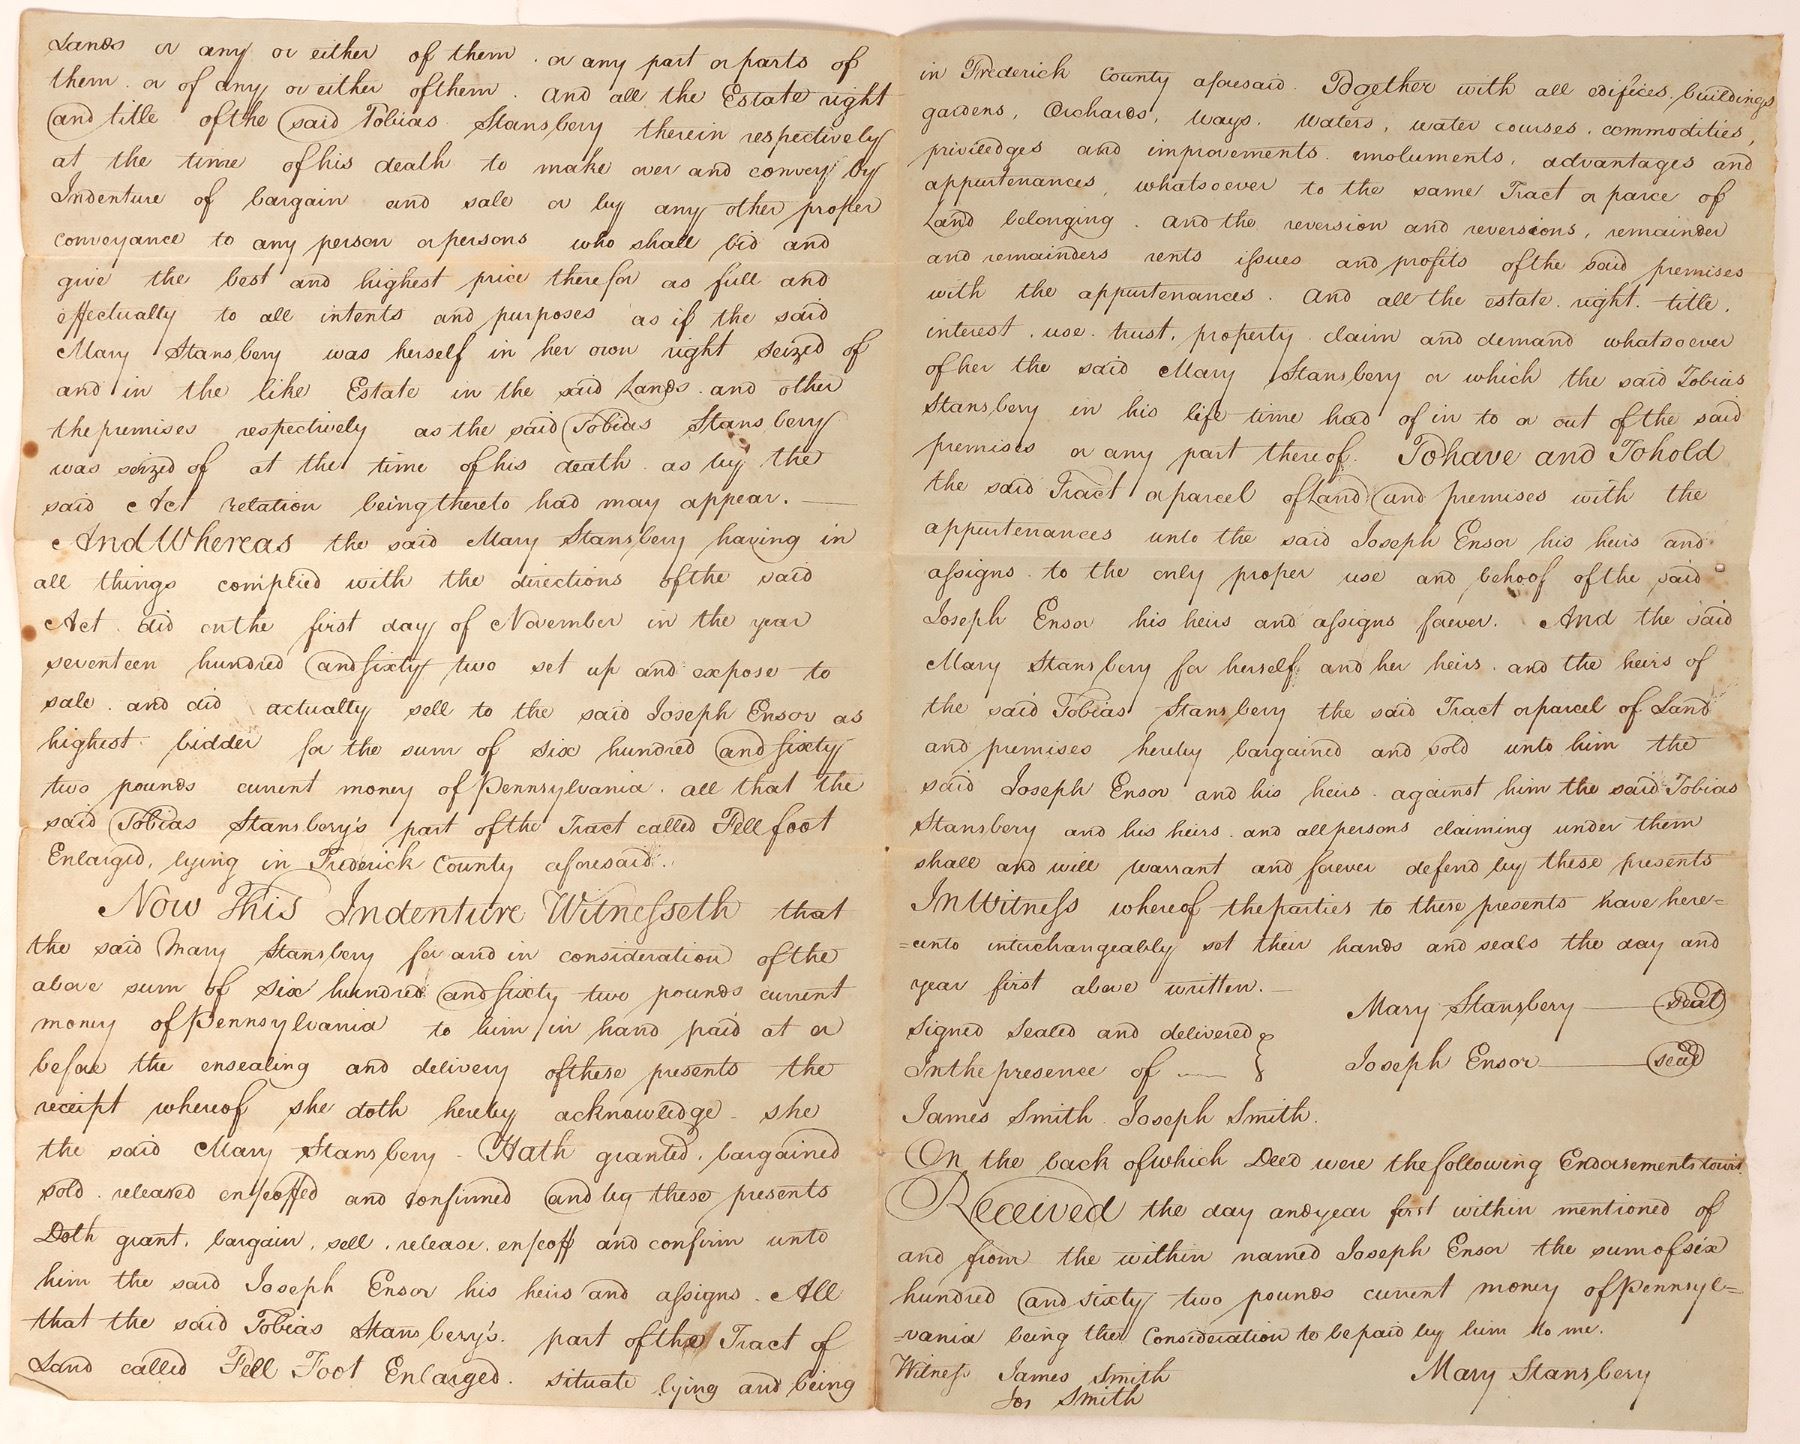 Lands or any or either of them . or any part or parts of
them . or of any or either of them . And all the Estate right
and title of the said Tobias Stansbery therein respectively
at the time of his death to make over and convey by
Indenture of bargain and sale or by any other proper
conveyance to any person or persons who shall bid and
give the best and highest price therefor as full and
effectually to all intents and purposes as if the said
Mary Stansbery was herself in her own right seized of
and in the like Estate in the said Lands . and other
the premises respectively as the said Tobias Stansbery
was seized of at the time of his death . as by the
said Act relation being thereto had may appear. —
And Whereas the said Mary Stansbery having in
all things complied with the directions of the said
Act . did on the first day of November in the year
seventeen hundred and sixty two set up and expose to
sale . and did actually sell to the said Joseph Ensor as
highest bidder for the sum of six hundred and sixty
two pounds current money of Pennsylvania . all that the
said Tobias Stansbery's part of the Tract called Fell foot
Enlarged, lying in Frederick County aforesaid .
Now This Indenture Witnesseth that
the said Mary Stansbery for and in consideration of the
above sum of six hundred and sixty two pounds current
money of Pennsylvania to him in hand paid at or
before the ensealing and delivery of these presents the
receipt whereof she doth hereby acknowledge - she
the said Mary Stansbery - Hath granted, bargained
sold . released enfeoffed and confirmed and by these presents
Doth grant, bargain, sell, release, enfeoff and confirm unto
him the said Joseph Ensor his heirs and assigns . All
that the said Tobias Stansbery's part of the Tract of
Land called Fell Foot Enlarged . situate lying and being
in Frederick County aforesaid . Together with all edifices, buildings
gardens, Orchards, ways, waters, water courses, commodities,
priviledges and improvements . emoluments, advantages and
appurtenances, whatsoever to the same Tract or parce of
Land belonging . and the reversion and reversions, remainder
and remainders rents issues and profits of the said premises
with the appurtenances . And all the estate, right, title,
interest, use, trust, property claim and demand whatsoever
of her the said Mary Stansbery or which the said Tobias
Stansbery in his life time had of in to or out of the said
premises or any part thereof . To have and To hold
the said Tract or parcel of Land and premises with the
appurtenances unto the said Joseph Ensor his heirs and
assigns . to the only proper use and behoof of the said
Joseph Ensor his heirs and assigns forever. And the said
Mary Stansbery for herself and her heirs . and the heirs of
the said Tobias Stansbery the said Tract or parcel of Land
and premises hereby bargained and sold unto him the
said Joseph Ensor and his heirs . against him the said Tobias
Stansbery and his heirs . and all persons claiming under them
shall and will warrant and forever defend by these presents
In Witness whereof the parties to these presents have here=
=unto interchangeably set their hands and seals the day and
year first above written. —
Mary Stansbery — seal
Signed sealed and delivered
Joseph Ensor — seal
In the presence of —
James Smith . Joseph Smith .
On the back of which Deed were the following Endorsements towit
Received the day and year first within mentioned of
and from the within named Joseph Ensor the sum of six
hundred and sixty two pounds current money of Pennsyl=
=vania being the Consideration to be paid by him to me.
Witness James Smith Mary Stansbery
Jos Smith